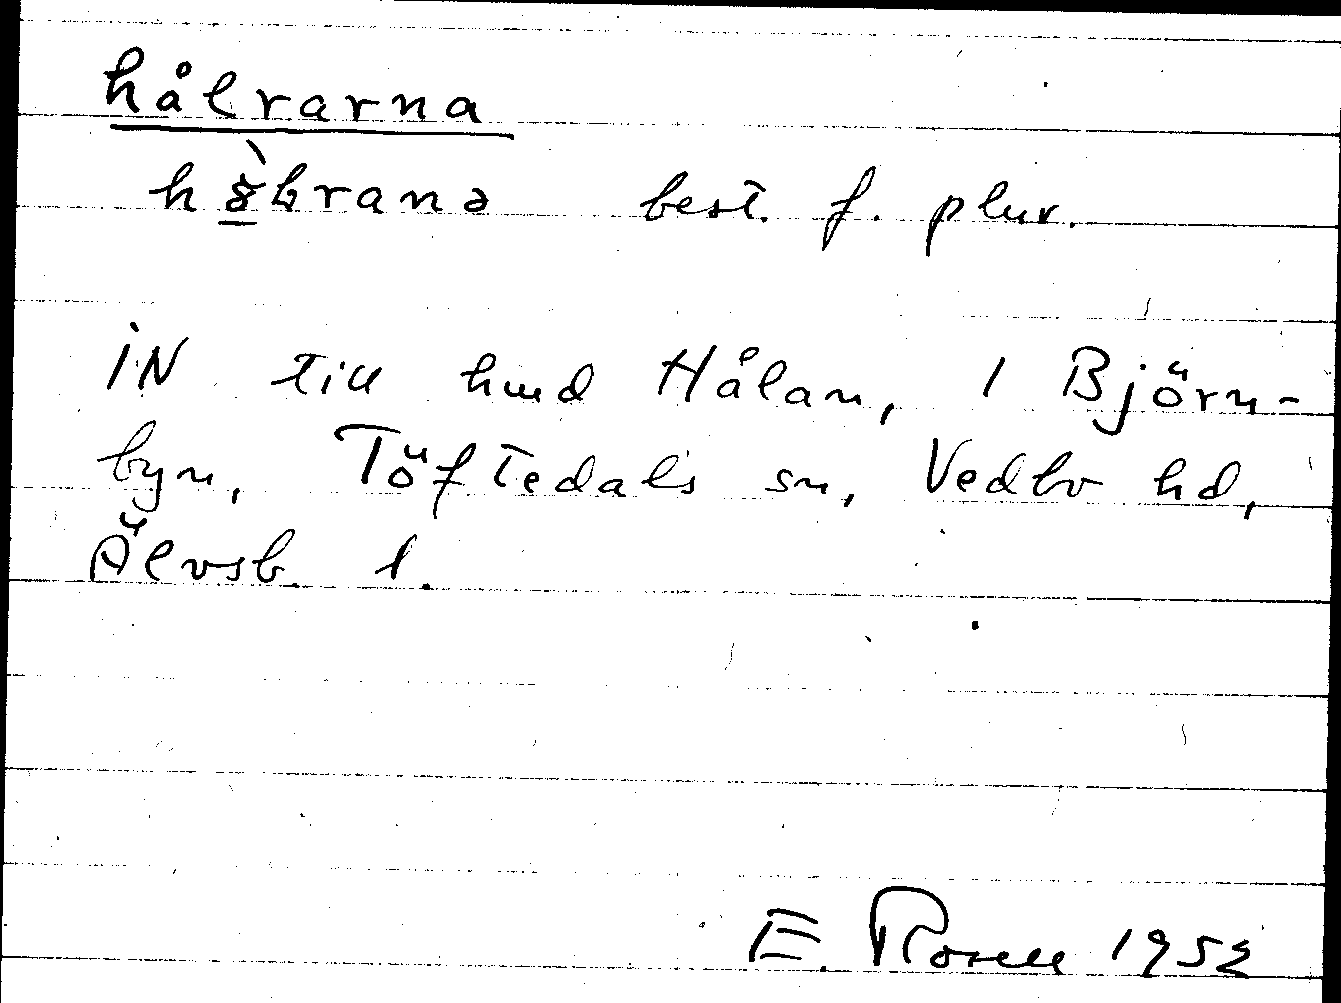 hålrarna
best. f. plur.
IN till hmd Hålan, 1 Björn-
byn, Töftedals sn, Vedbo hd,
Älvsb. l.
E. Rosell 1952